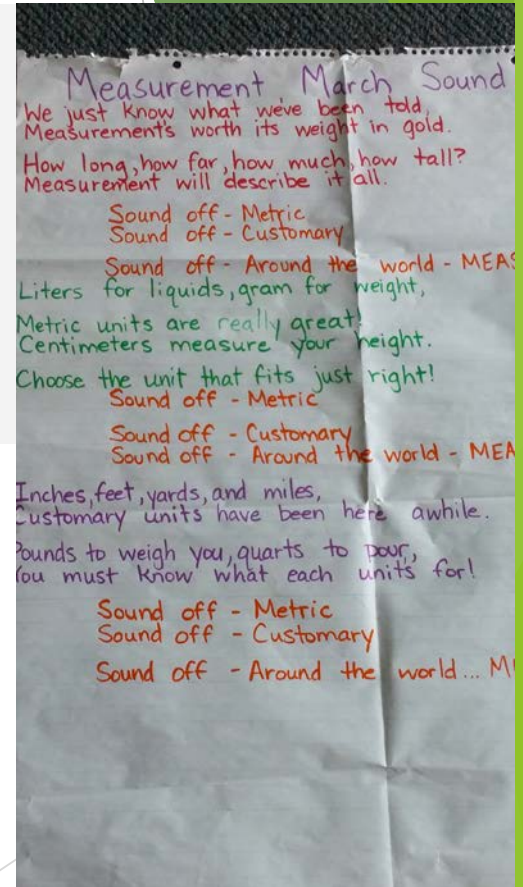 Measurement March Sound
We just know what we've been told,
Measurement's worth its weight in gold.
How long, how far, how much, how tall?
Measurement will describe it all.
Sound off - Metric
Sound off - Customary
Sound off - Around the world - MEAS
Liters for liquids, gram for weight,
Metric units are really great!
Centimeters measure your height.
Choose the unit that fits just right!
Sound off - Metric
Sound off - Customary
Sound off - Around the world - MEA
Inches, feet, yards, and miles,
Customary units have been here awhile.
Pounds to weigh you, quarts to pour,
You must know what each units for!
Sound off - Metric
Sound off - Customary
Sound off - Around the world... M